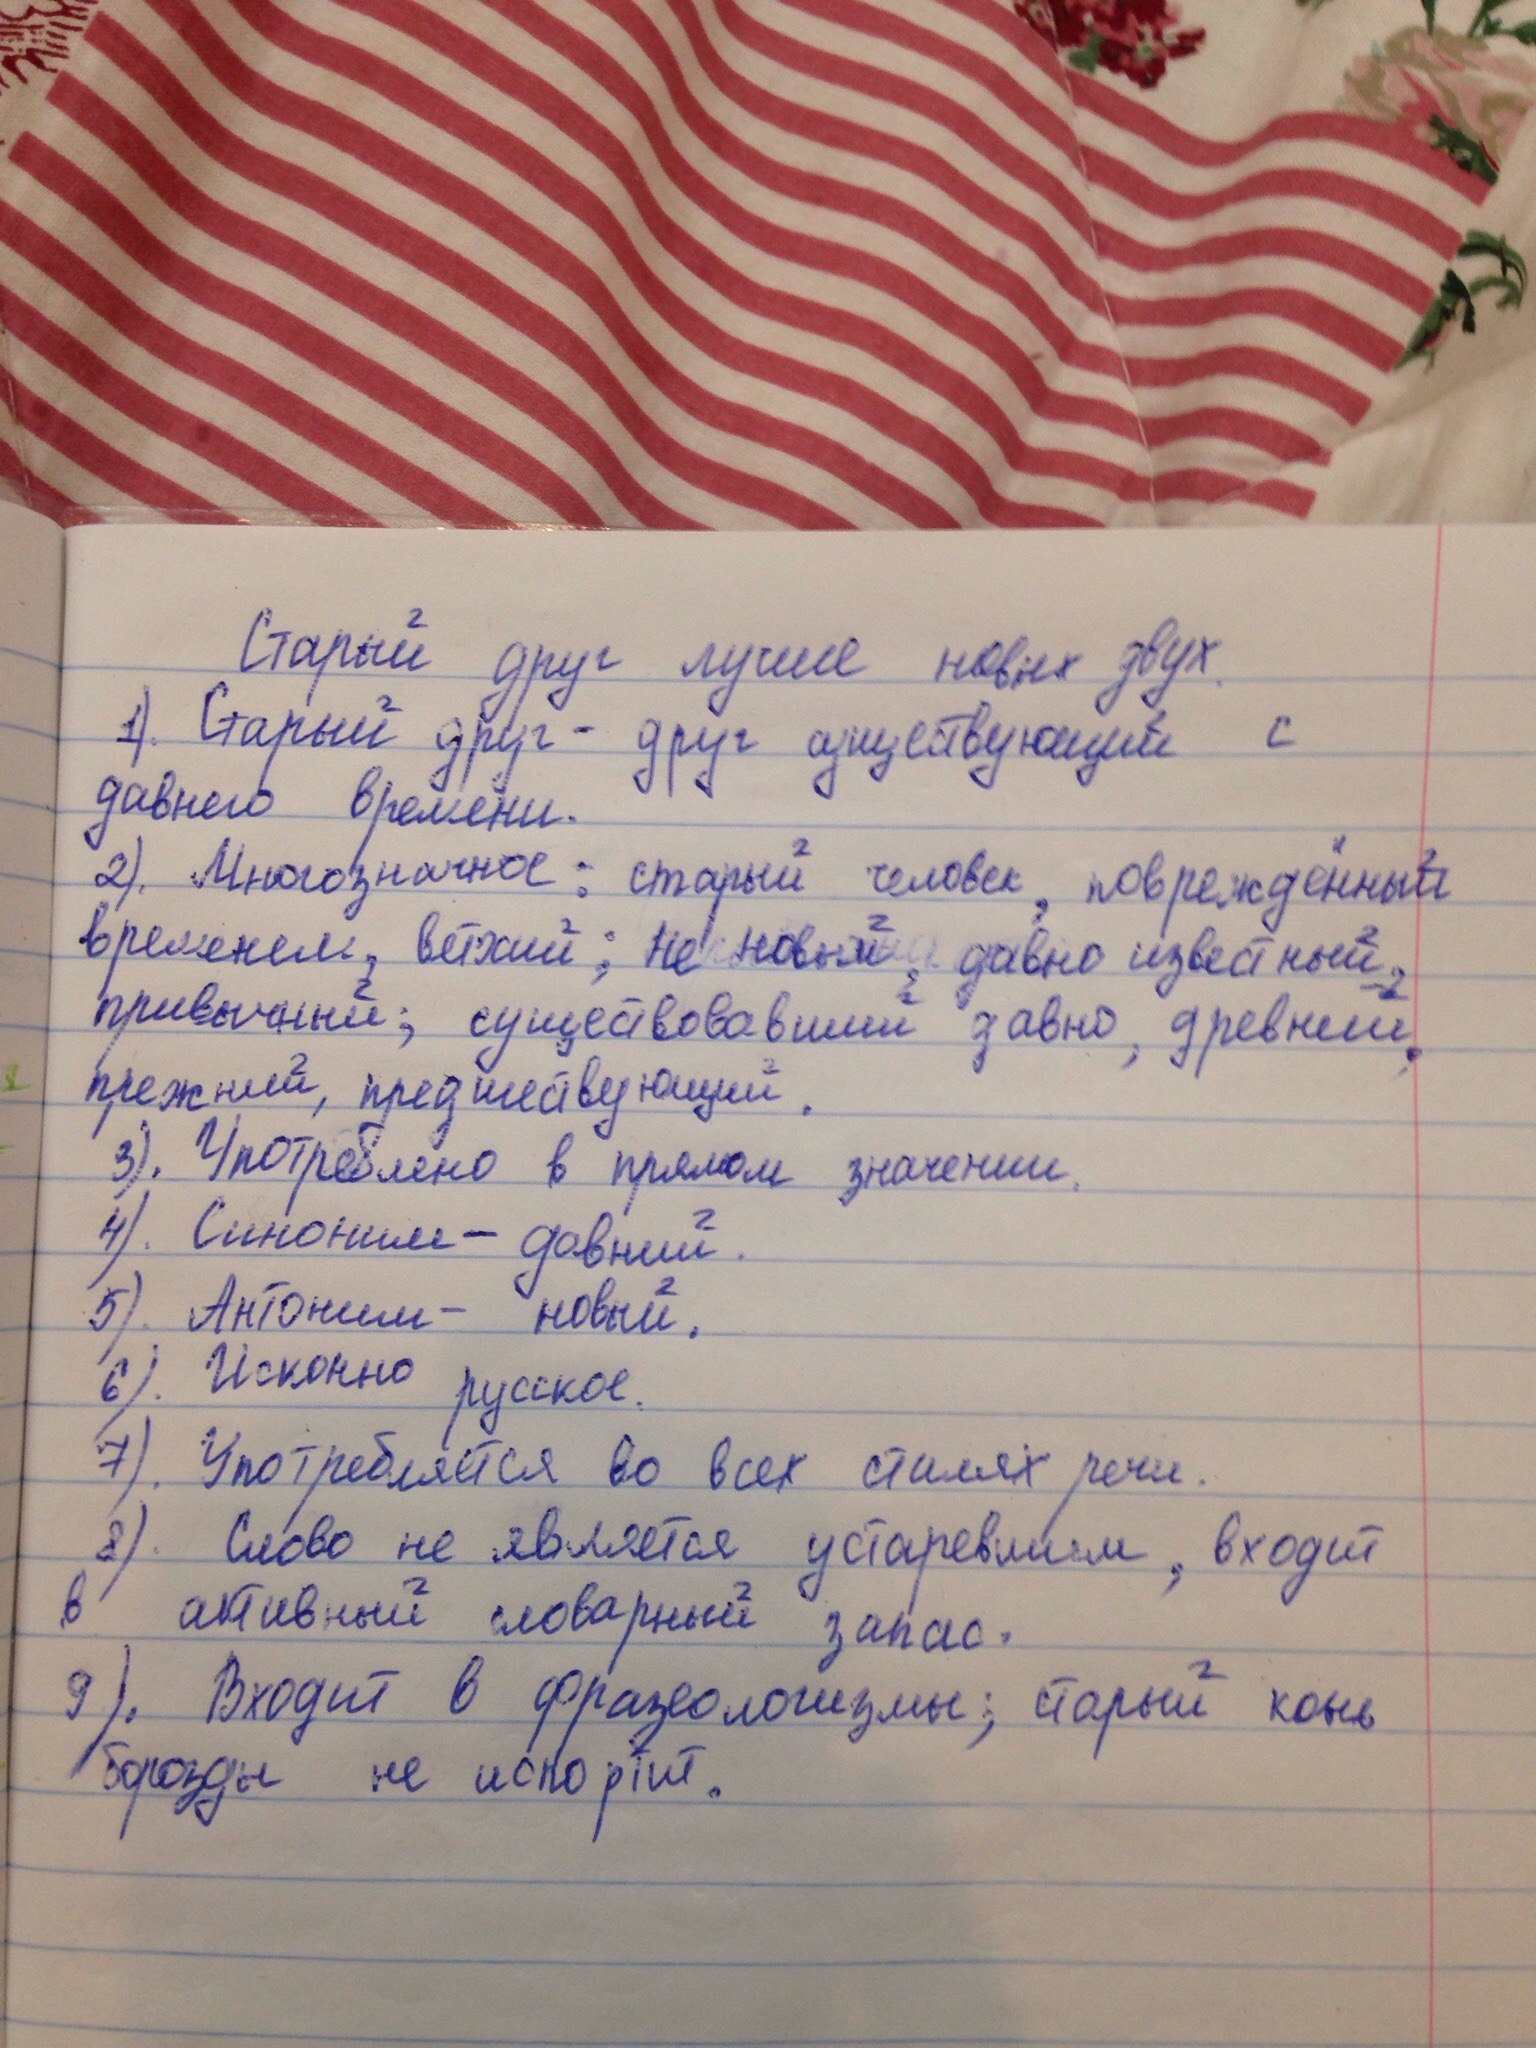 Старый друг лучше новых двух.
1). Старый друг - друг существующий с
давнего времени.
2). Многозначное: старый человек, повреждённый
временем, ветхий; не новый, давно известный,
привычный; существовавший давно, древний,
прежний, предшествующий.
3). Употреблено в прямом значении.
4). Синоним - давний.
5). Антоним - новый.
6). Исконно русское.
7). Употребляется во всех стилях речи.
8). Слово не является устаревшим, входит
в активный словарный запас.
9). Входит в фразеологизмы; старый конь
борозды не испортит.